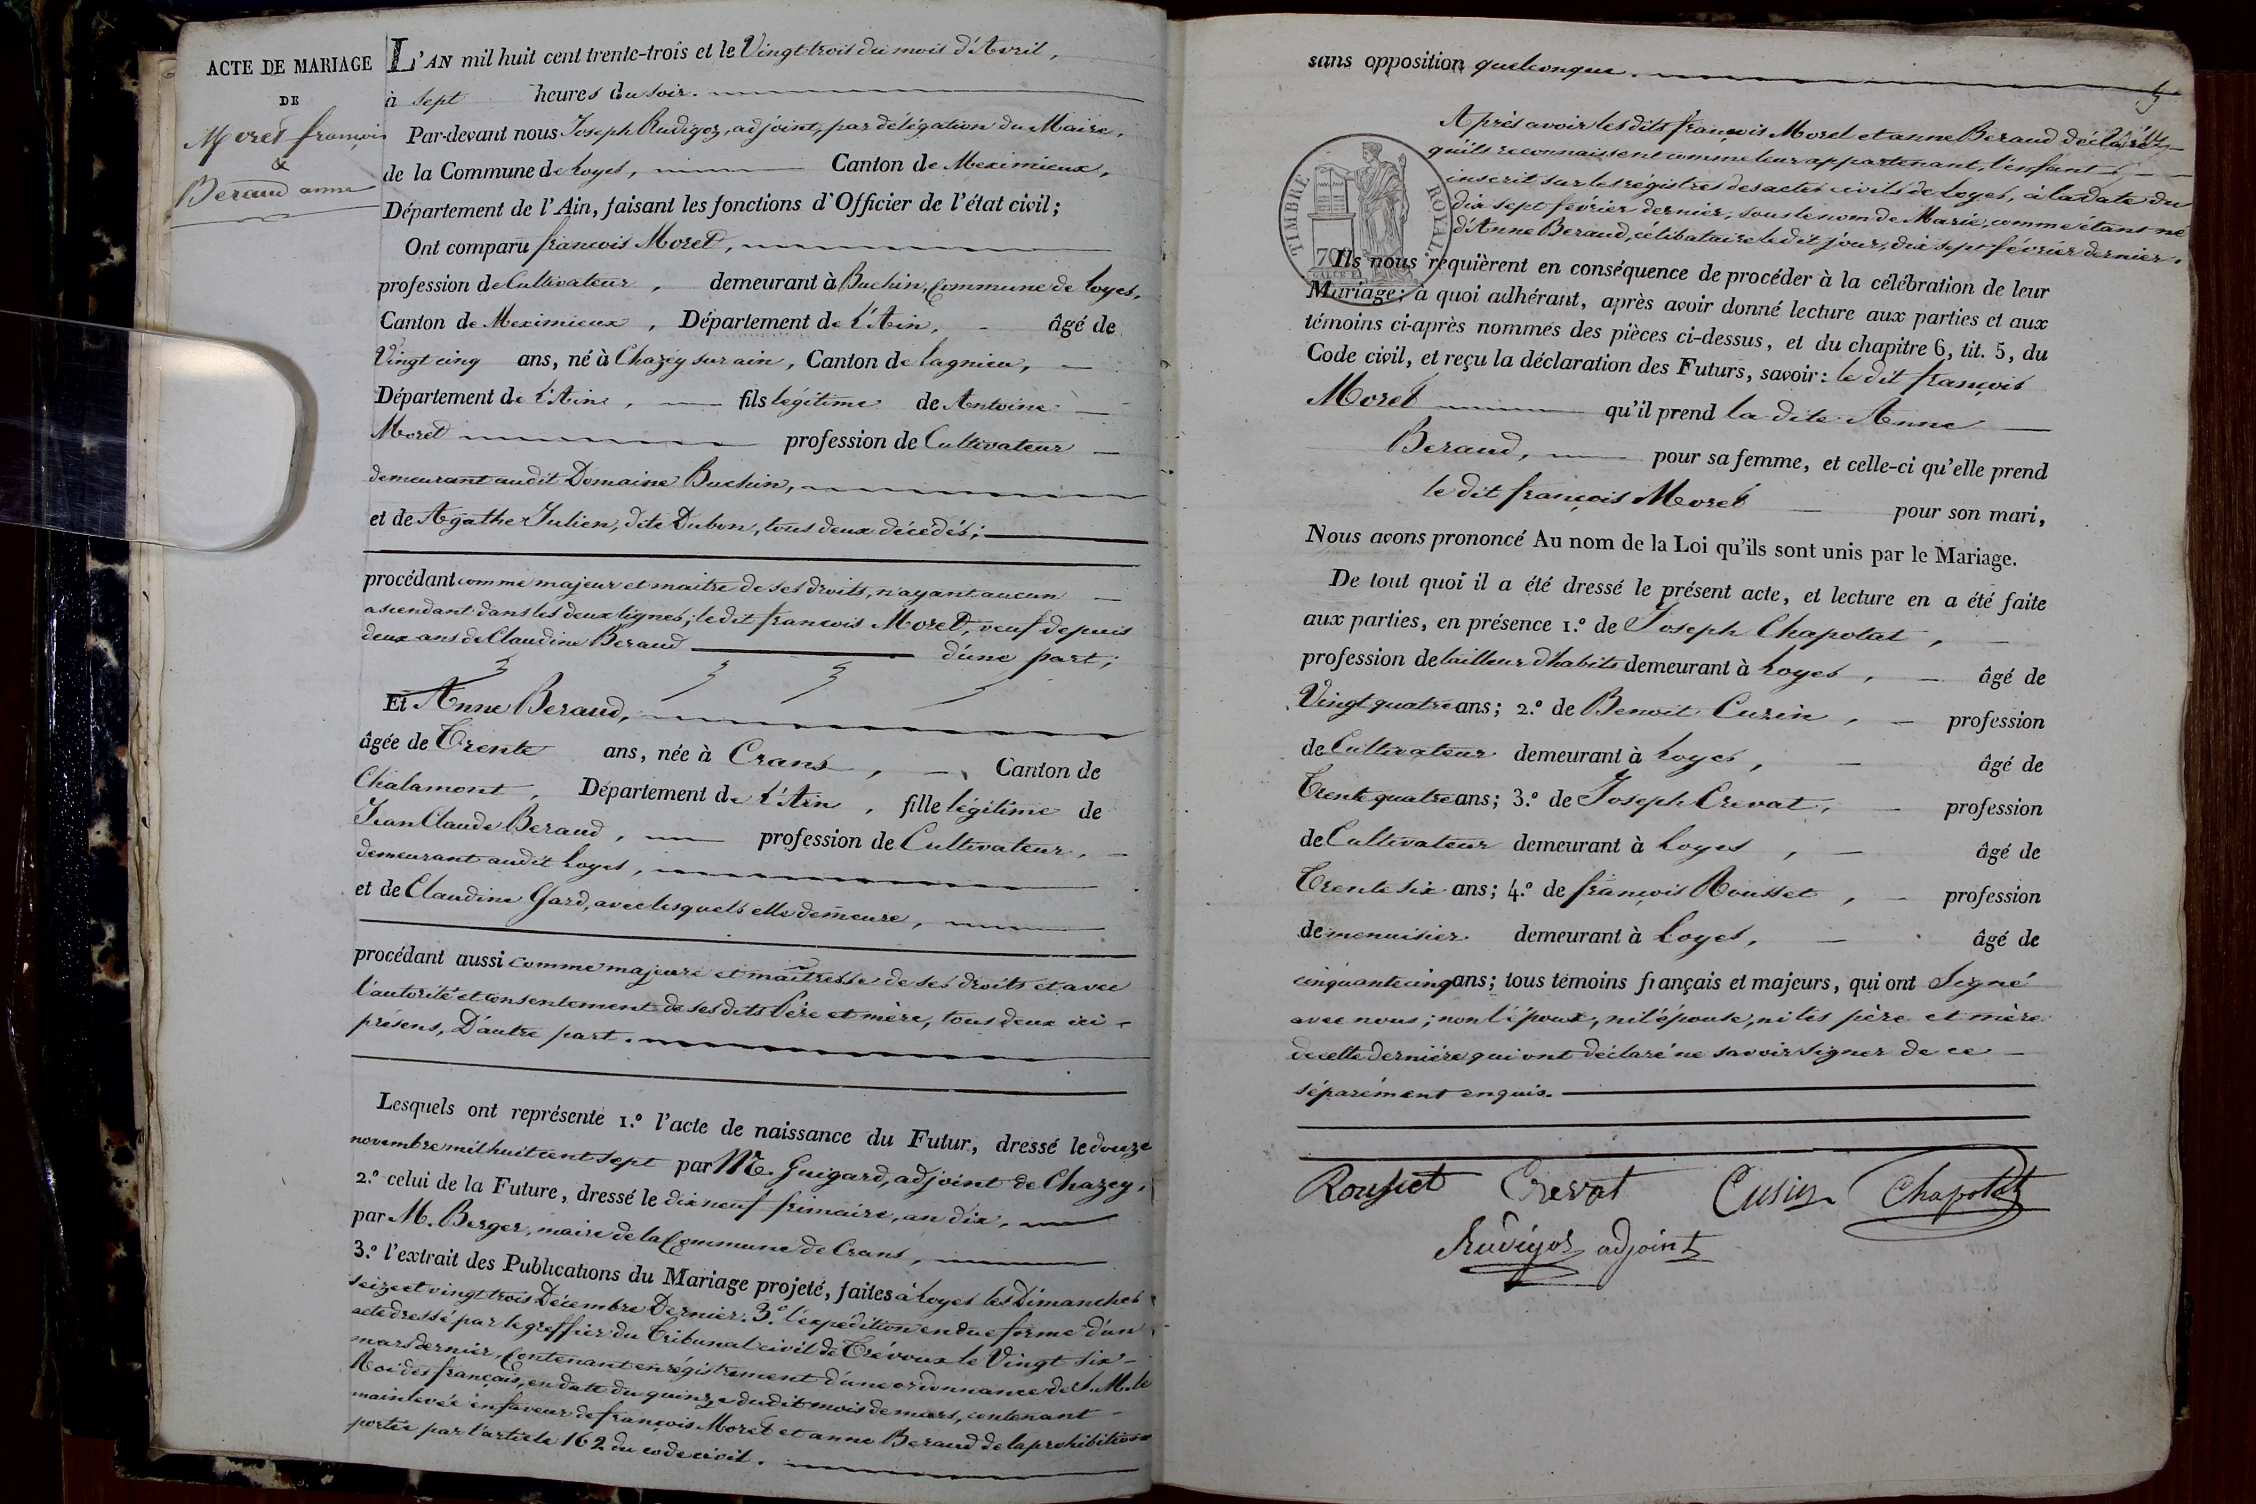 ACTE DE MARIAGE
DE
Moret françois
&
Beraud anne
L'AN mil huit cent trente-trois et le Vingt trois du mois d'Avril,
à sept heures du soir.
Par-devant nous Joseph Rudigoz, adjoint, par délégation du Maire,
de la Commune de Loyes, Canton de Meximieux,
Département de l'Ain, faisant les fonctions d'Officier de l'état civil;
Ont comparu françois Moret,
profession de Cultivateur, demeurant à Buchin, Commune de Loyes,
Canton de Meximieux, Département de L'Ain, âgé de
Vingt cinq ans, né à Chazey sur ain, Canton de Lagnieu,
Département de L'Ain, fils légitime de Antoine
Moret profession de Cultivateur
demeurant audit Domaine Buchin,
et de Agathe Julien, dite Dubon, tous deux décédés;
procédant comme majeur et maitre de ses droits, n'ayant aucun
ascendant dans les deux lignes; le dit françois Moret, veuf depuis
deux ans de Claudine Beraud d'une part;
Et Anne Beraud,
âgée de Trente ans, née à Crans, Canton de
Chalamont, Département de L'Ain, fille légitime de
Jean Claude Beraud, profession de Cultivateur,
demeurant audit Loyes,
et de Claudine Gard, avec lesquels elle demeure,
procédant aussi comme majeure et maîtresse de ses droits et avec
l'autorité et consentement de ses dits Père et mère, tous deux ici
présens, D'autre part.
Lesquels ont représenté 1.º l'acte de naissance du Futur, dressé le douze
novembre mil huit cent sept par M. Guigard, adjoint de Chazey,
2.º celui de la Future, dressé le dix neuf frimaire, an dix,
par M. Berger, maire de la Commune de Crans,
3.º l'extrait des Publications du Mariage projeté, faites à Loyes les Dimanches
seize et vingt trois Décembre Dernier. 3.º l'expédition en due forme d'un
acte dressé par le greffier du Tribunal civil de Trévoux le Vingt six
mars dernier, Contenant enrégistrement d'une ordonnance de S. M. le
Roi des français, en date du quinze dudit mois de mars, contenant
mainlevée en faveur de françois Moret et anne Beraud de la prohibition
portée par l'article 162 du code civil.
sans opposition quelconque.
TIMBRE ROYAL
Après avoir les dits françois Moret et anne Beraud déclaré
qu'ils reconnaissent comme leur appartenant, l'enfant
inscrit sur les régistres des actes civils de Loyes, à la date du
dix sept février dernier, sous le nom de Marie, comme étant né
d'Anne Beraud, célibataire ledit jour, dix sept février dernier.
Ils nous requièrent en conséquence de procéder à la célébration de leur
Mariage; à quoi adhérant, après avoir donné lecture aux parties et aux
témoins ci-après nommés des pièces ci-dessus, et du chapitre 6, tit. 5, du
Code civil, et reçu la déclaration des Futurs, savoir: le dit françois
Moret qu'il prend la dite Anne
Beraud, pour sa femme, et celle-ci qu'elle prend
le dit françois Moret pour son mari,
Nous avons prononcé Au nom de la Loi qu'ils sont unis par le Mariage.
De tout quoi il a été dressé le présent acte, et lecture en a été faite
aux parties, en présence 1.º de Joseph Chapolat,
profession de tailleur d'habits demeurant à Loyes, âgé de
Vingt quatre ans; 2.º de Benoit Cuzin, profession
de Cultivateur demeurant à Loyes, âgé de
Trente quatre ans; 3.º de Joseph Crevat, profession
de Cultivateur demeurant à Loyes, âgé de
Trente six ans; 4.º de françois Rousset, profession
de menuisier demeurant à Loyes, âgé de
cinquante cinq ans; tous témoins français et majeurs, qui ont Signé
avec nous; non l'époux, ni l'épouse, ni les père et mère
de cette dernière qui ont déclaré ne savoir signer de ce
séparément enquis.
Rousset Crevat Cusin Chapolat
Rudigoz adjoint